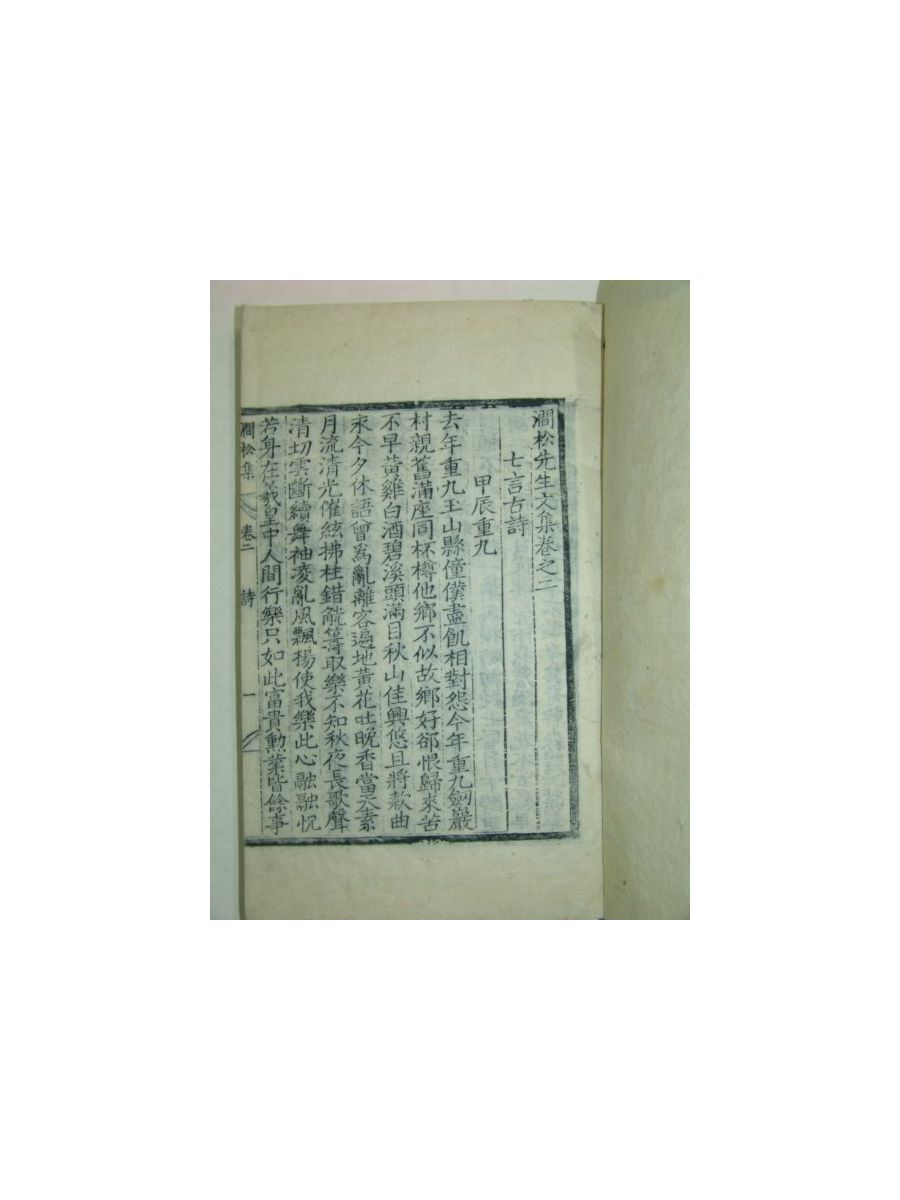 澗松先生文集卷之二
七言古詩
甲辰重九
去年重九玉山縣僮僕盡飢相對怨今年重九劒巖
村親舊滿座同杯樽他鄉不似故鄉好郤恨歸來苦
不早黃雞白酒碧溪頭滿目秋山佳興悠且將款曲
來今夕休語曾爲亂離客遍地黃花吐晚香當天素
月流清光催絃拂柱錯觥籌取樂不知秋夜長歌聲
清切雲斷續舞袖凌亂風飄揚使我樂此心融融怳
若身在羲皇中人間行樂只如此富貴勳業皆餘事
澗松集 卷二 詩 一